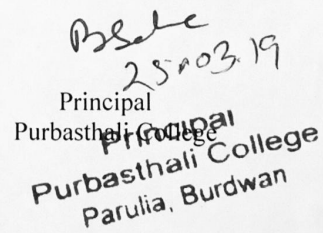 25.03.19
Principal
Purbasthali College
Principal
Purbasthali College
Parulia, Burdwan